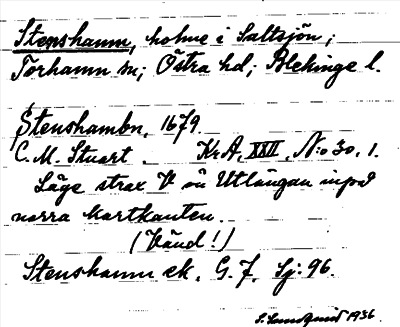 Stenshamn, holme i Saltsjön;
Torhamn sn; Östra hd; Blekinge l.
Stenshambn, 1679.
C. M. Stuart. KrA, XXII, N:o 30, 1.
Läge strax V om Utlängan inpå
norra kartkanten.
(Vänd!)
Stenshamn ek. G. 7. Sj: 96.
S. Lundquist 1936.